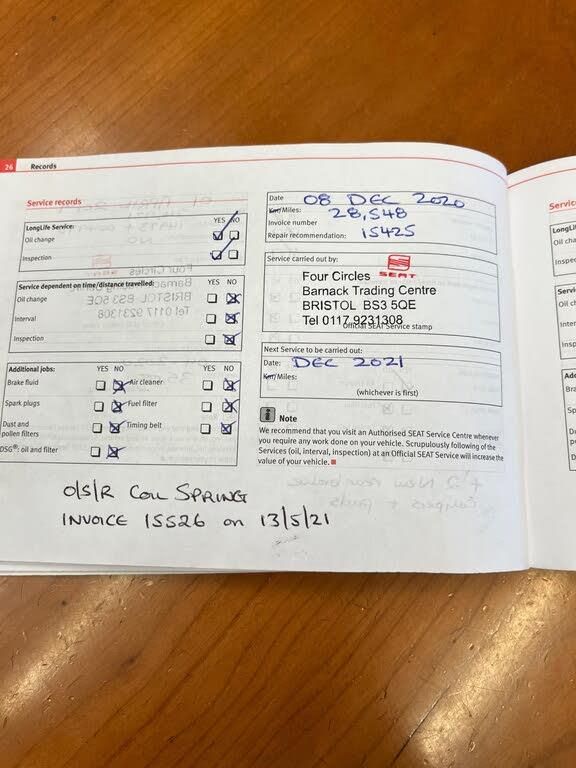 26 Records
Service records
YES NO
LongLife Service:
Oil change
Inspection
Service dependent on time/distance travelled: YES NO
Oil change
Interval
Inspection
Additional jobs: YES NO YES NO
Brake fluid Air cleaner
Spark plugs Fuel filter
Dust and
pollen filters Timing belt
DSG®: oil and filter
O/S/R COIL SPRING
INVOICE 15526 on 13/5/21
Date 08 DEC 2020
Km/Miles: 28,548
Invoice number
Repair recommendation: 15425
Service carried out by:
SEAT
Four Circles
Barnack Trading Centre
BRISTOL BS3 5QE
Tel 0117 9231308
Official SEAT Service stamp
Next Service to be carried out:
Date: DEC 2021
Km/Miles:
(whichever is first)
Note
We recommend that you visit an Authorised SEAT Service Centre whenever
you require any work done on your vehicle. Scrupulously following of the
Services (oil, interval, inspection) at an Official SEAT Service will increase the
value of your vehicle.
Servic
LongL
Oil ch
Inspe
Servi
Oil c
Inter
Insp